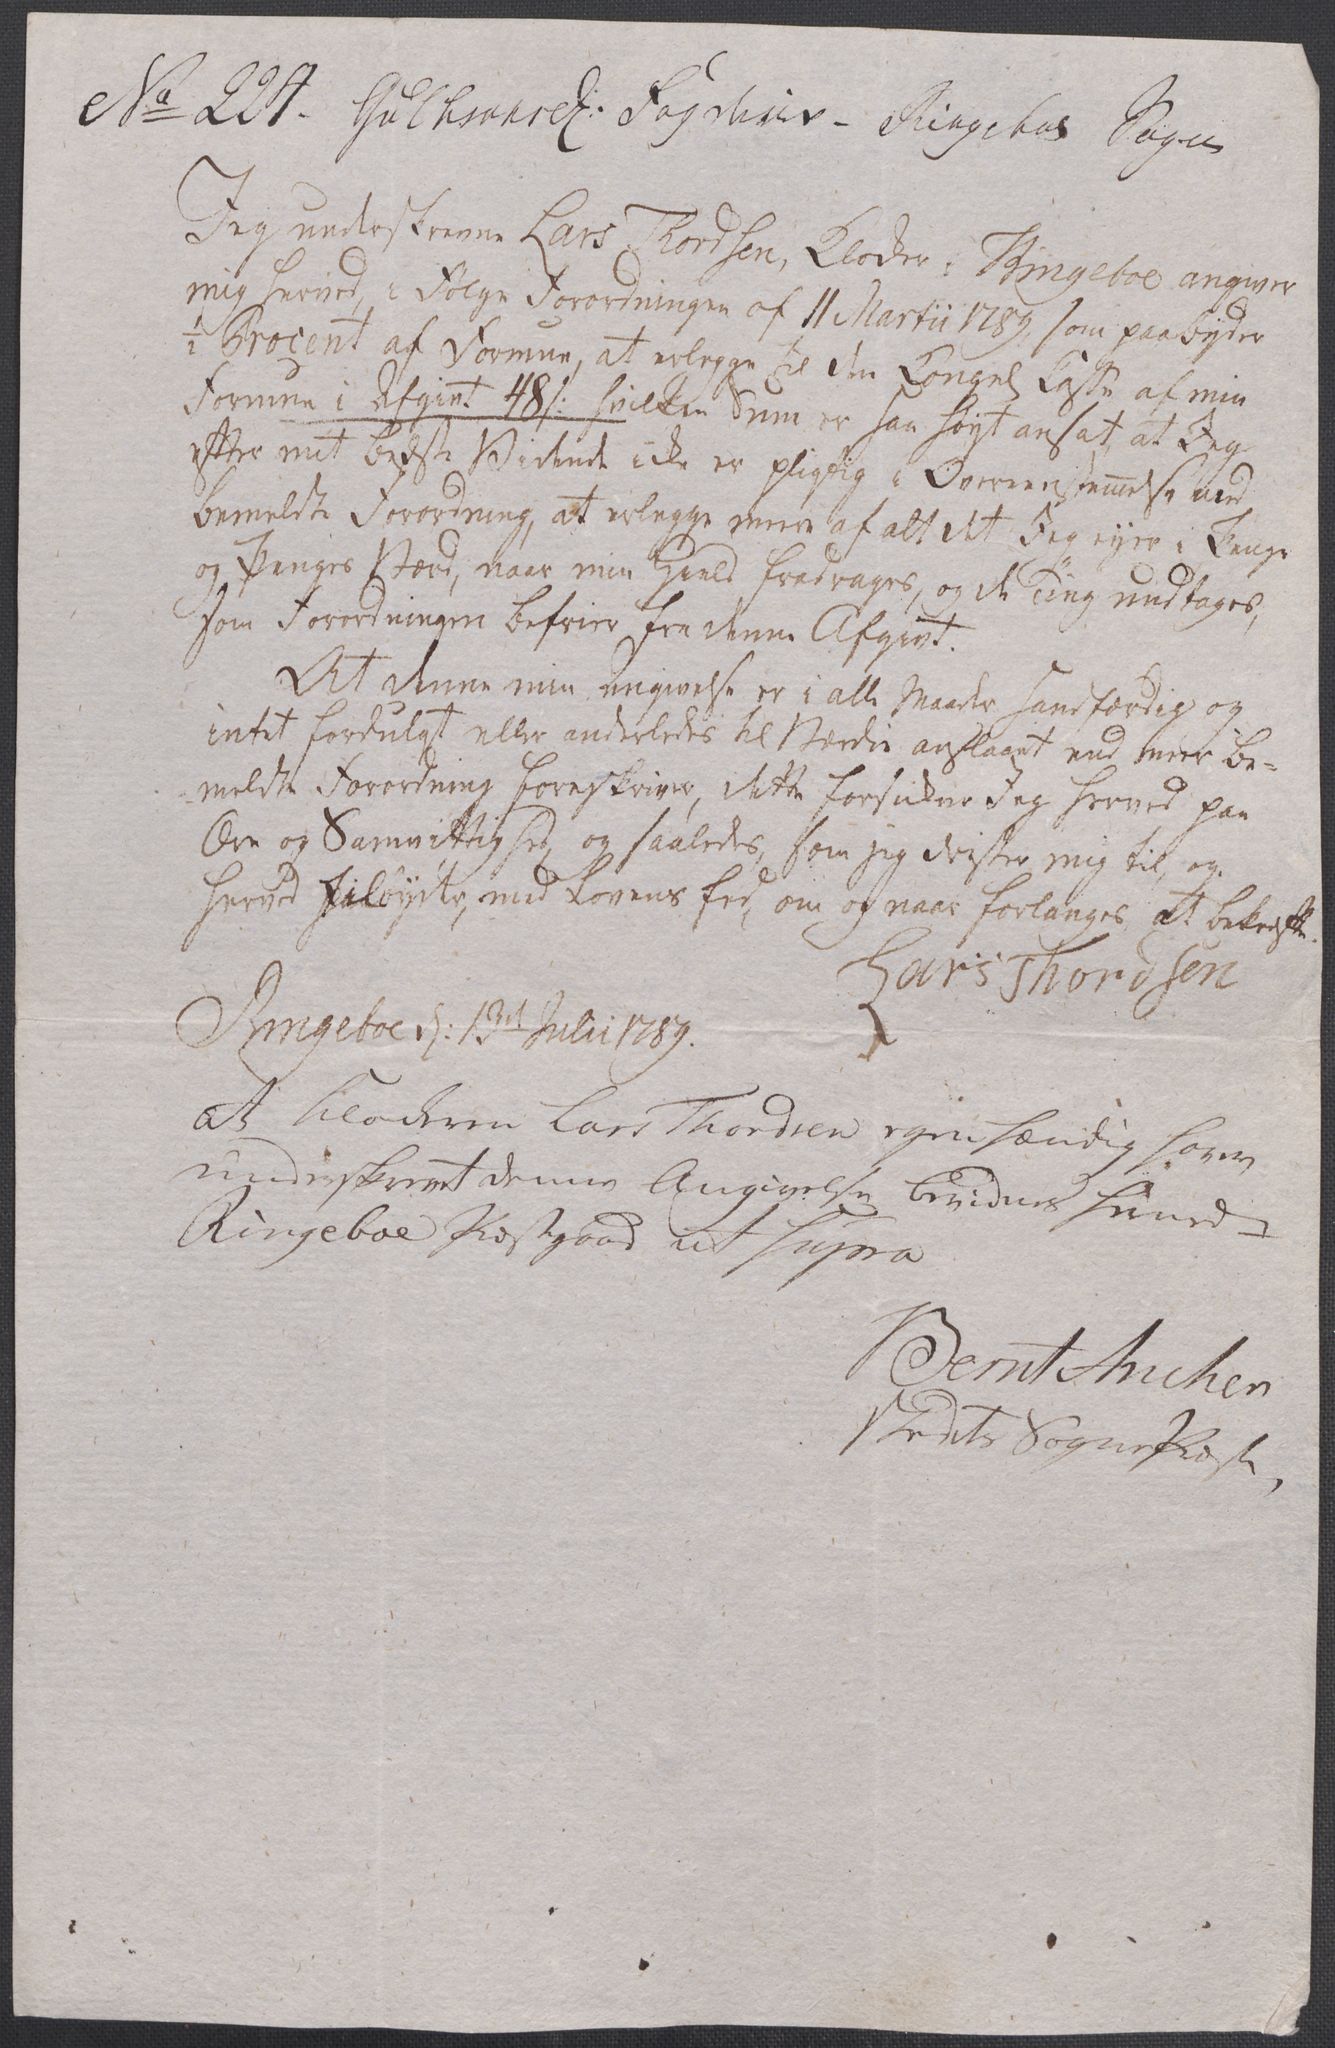 No 224. Gulbransd: Fogderie - Ringeboe Sogn
Jeg underskrevne Lars Thordsen, Klocker i Ringeboe angiver
mig herved, i Følge Forordningen af 11 Martii 1789, som paabyder
½ Procent af Formue, at erlegge til den Kongel Kasse af min
Formue i Afgivt 48 s: hvilken Sum er saa høyt ansat, at Jeg
efter mit beste Vidende icke er pligtig i Overeenstemelse med
bemeldte Forordning, at erlegge meere af alt det Jeg eyer i Penge
og Penges Værd, naar min Gield fradrages, og de Ting undtages,
som Forordningen befrier fra denne Afgivt.
At denne min angivelse er i alle Maader sandfærdig og
intet fordulgt eller anderledes til Værdie anslaaet end meer be-
meldte Forordning foreskriver, dette forsikrer Jeg herved paa
Ære og Samvittighed, og saaledes, som jeg drister mig til, og
herved tilbyder, med Lovens Eed, om og naar forlanges, at bekræfte.
Lars Thordsen
Ringeboe d: 13de Julii 1789.
At Klockeren Lars Thordsen egenhændig haver
underskrevet denne Angivelse bevidnes herved
Ringeboe Præstgaard ut supra
Bernt Ancher
Stedets Sogne Præst,